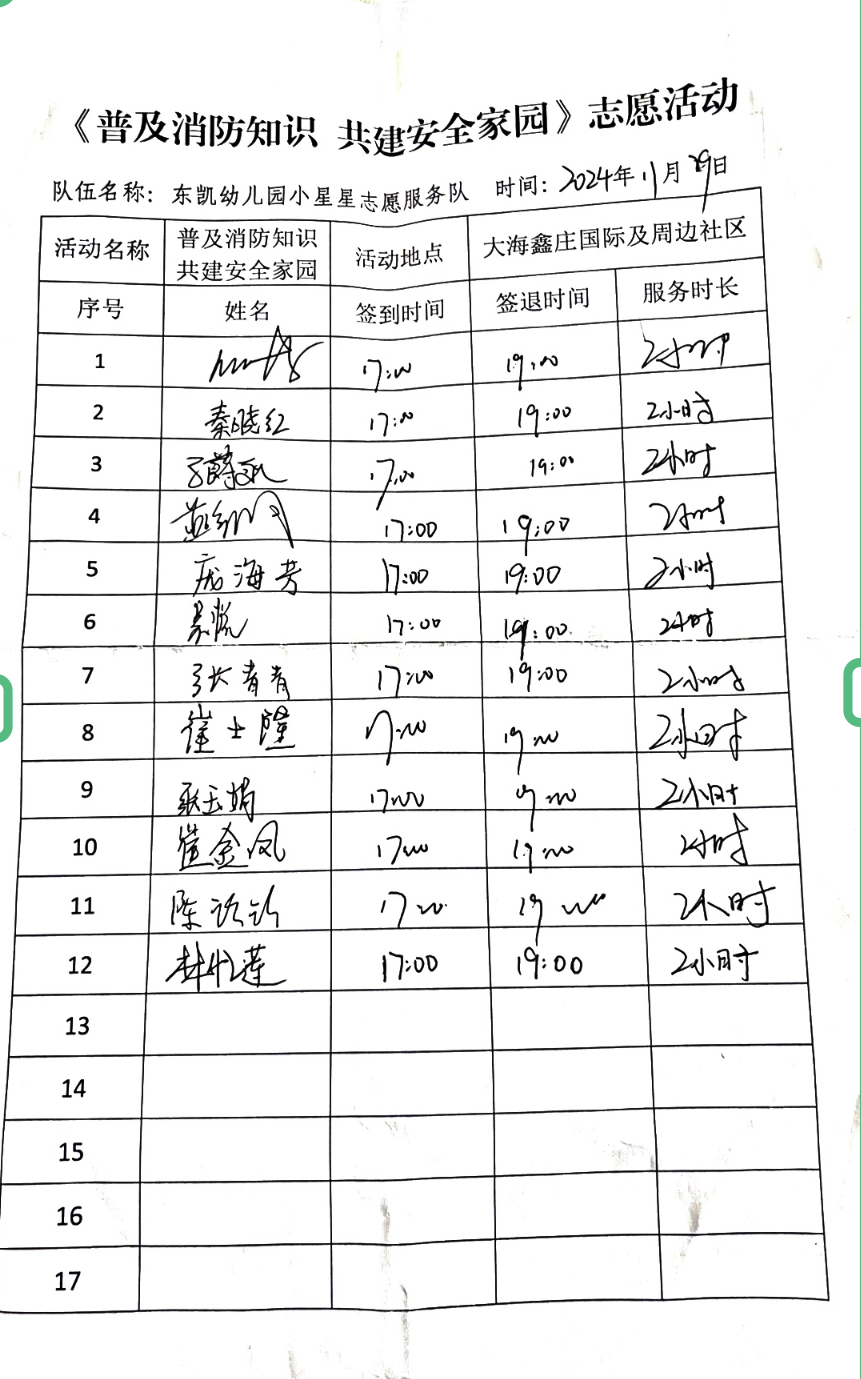 《普及消防知识 共建安全家园》志愿活动
队伍名称：东凯幼儿园小星星志愿服务队 时间：2024年11月29日
活动名称 普及消防知识 共建安全家园 活动地点 大海鑫庄国际及周边社区
序号 姓名 签到时间 签退时间 服务时长
1 17:00 19:00 2小时
2 秦晓红 17:00 19:00 2小时
3 17:00 19:00 2小时
4 17:00 19:00 2小时
5 庞海芳 17:00 19:00 2小时
6 17:00 19:00 2小时
7 张青青 17:00 19:00 2小时
8 崔士隆 17:00 19:00 2小时
9 张玉娟 17:00 19:00 2小时
10 崔金凤 17:00 19:00 2小时
11 17:00 19:00 2小时
12 17:00 19:00 2小时
13
14
15
16
17